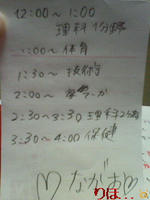 12:00～1:00
理科1分野
1:00～体育
1:30～技術
2:00～
2:30～3:30 理科2分野
3:30～4:00 保健
♡ながお♡
りほ…